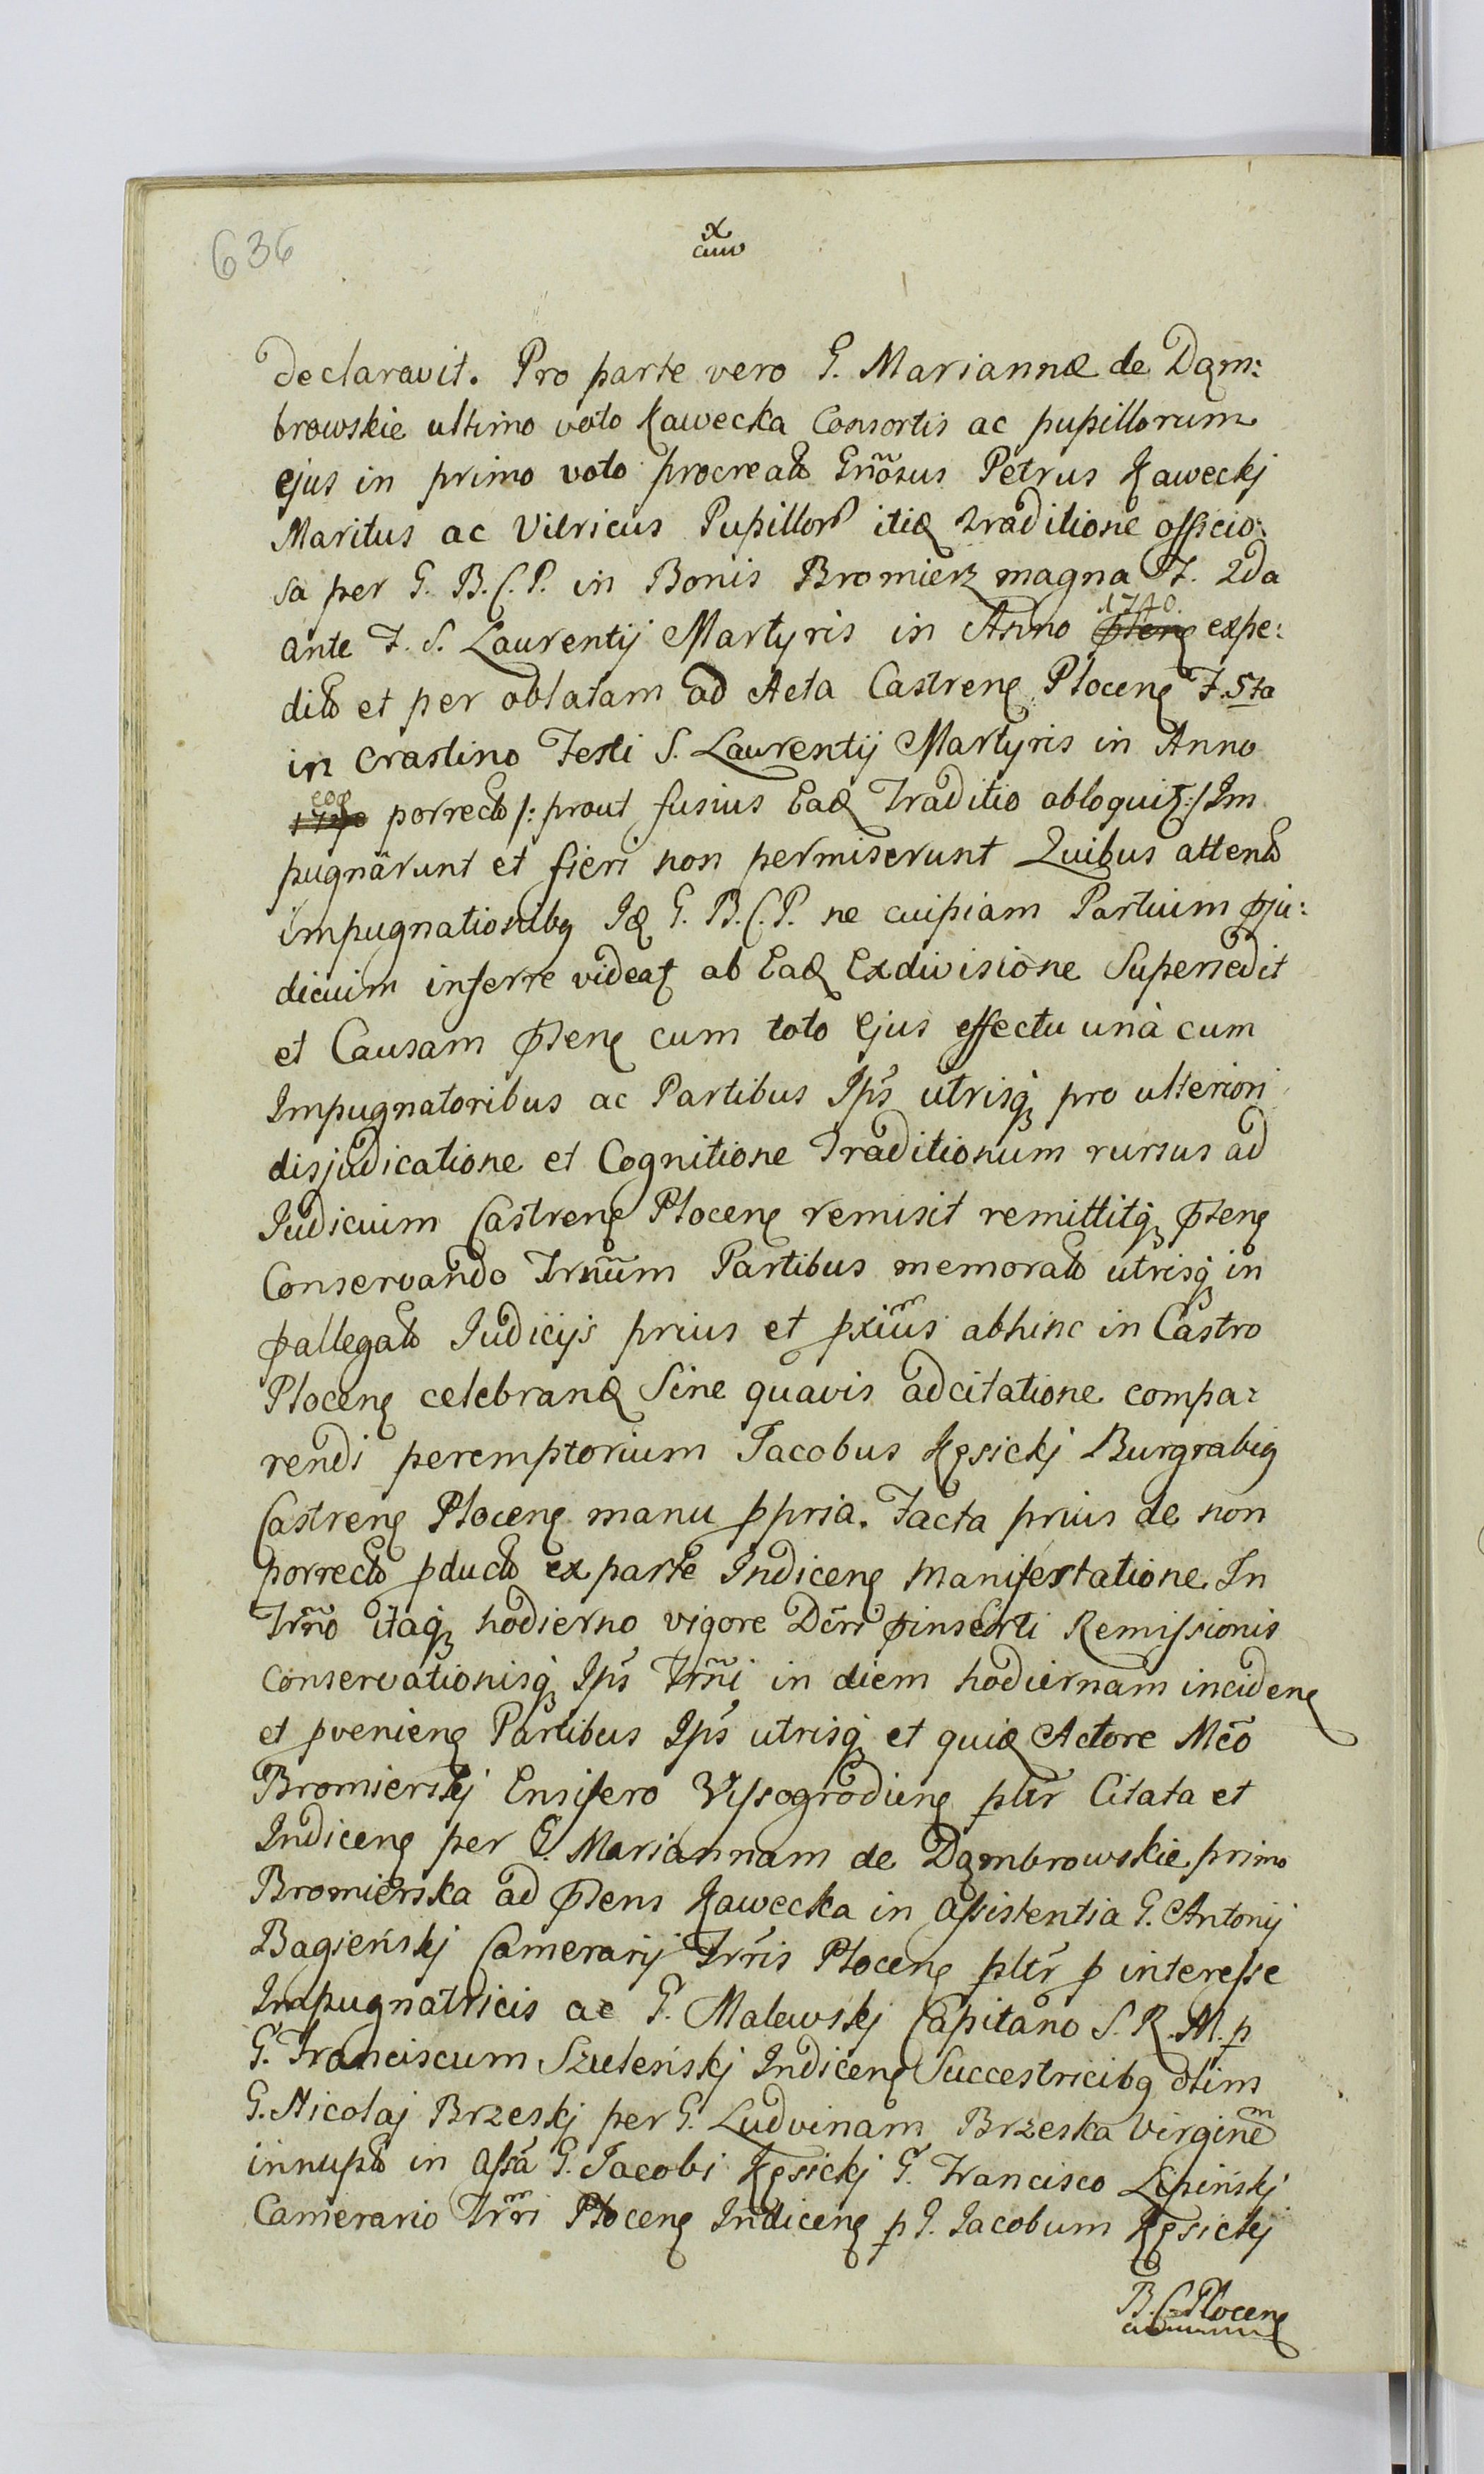 636
declaravit. Pro parte vero G. Mariannæ de Dąm:
browskie ultimo voto Kawecka Consortis ac pupillorum
ejus in primo voto procreat Gnosus Petrus Kaweckj
Maritus ac Vitricus Pupillor itid traditione officio:
sa per G. B. C. P. in Bonis Bromierz magna F. 2da
ante F. S. Laurentij Martyris in Anno 1740. expe:
dit et per oblatam ad Acta Castren Plocen F. 5ta
in crastino Festi S. Laurentij Martyris in Anno
eod porrect /: prout fusius Ead Traditio obloquit :/ Im
pugnârunt et fieri non permiserunt Quibus attent
impugnationibq Id G. B. C. P. ne cuipiam Partium pju:
dicium inferre videat ab Ead Exdivisione Supersedit
et Causam psten cum toto Ejus effectu unà cum
Impugnatoribus ac Partibus Ips utrisq pro ulteriori
disjudicatione et Cognitione Traditionum rursus ad
Judicium Castren Plocen remisit remittitq psten
Conservando Trnum Partibus memorat utrisq in
pallegat Judicijs prius et pximis abhinc in Castro
Plocen celebrand Sine quavis adcitatione compa:
rendi peremptorium Jacobus Kęsickj Burgrabig
Castren Plocen manu ppria. Facta prius de non
porrect pduct ex parte Indicen manifestatione. In
Trno itaq hodierno vigore Dcri pinserti Remissionis
Conservationisq Ips Trni in diem hodiernam inciden
et pvenien Partibus Ips utrisq et quid Actore Mco
Bromierskj Ensifero Vyssogrodien pltr Citata et
Indicen per G. Mariannam de Dąmbrowskie primo
Bromierska ad pstens Kawecka in assistentia G. Antonij
Bagieńskj Camerarij Trris Plocen pltr p interesse
Impugnatricis ac G. Malewskj Capitano S. R. M. p
G. Franciscum Szuleńskj Indicen Succestricibq olim
G. Nicolaj Brzeskj per G. Ludvinam Brzeska Virginem
innupt in Assa G. Jacobi Kęsickj G. Francisco Lipińskj
Camerario Trri Plocen Indicen p G. Jacobum Kęsickj
B. C. Plocen